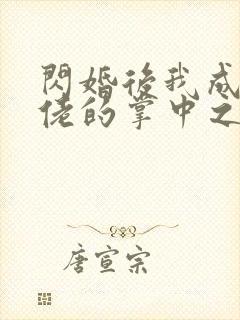 閃婚後我成
佬的掌中之
唐宣宗